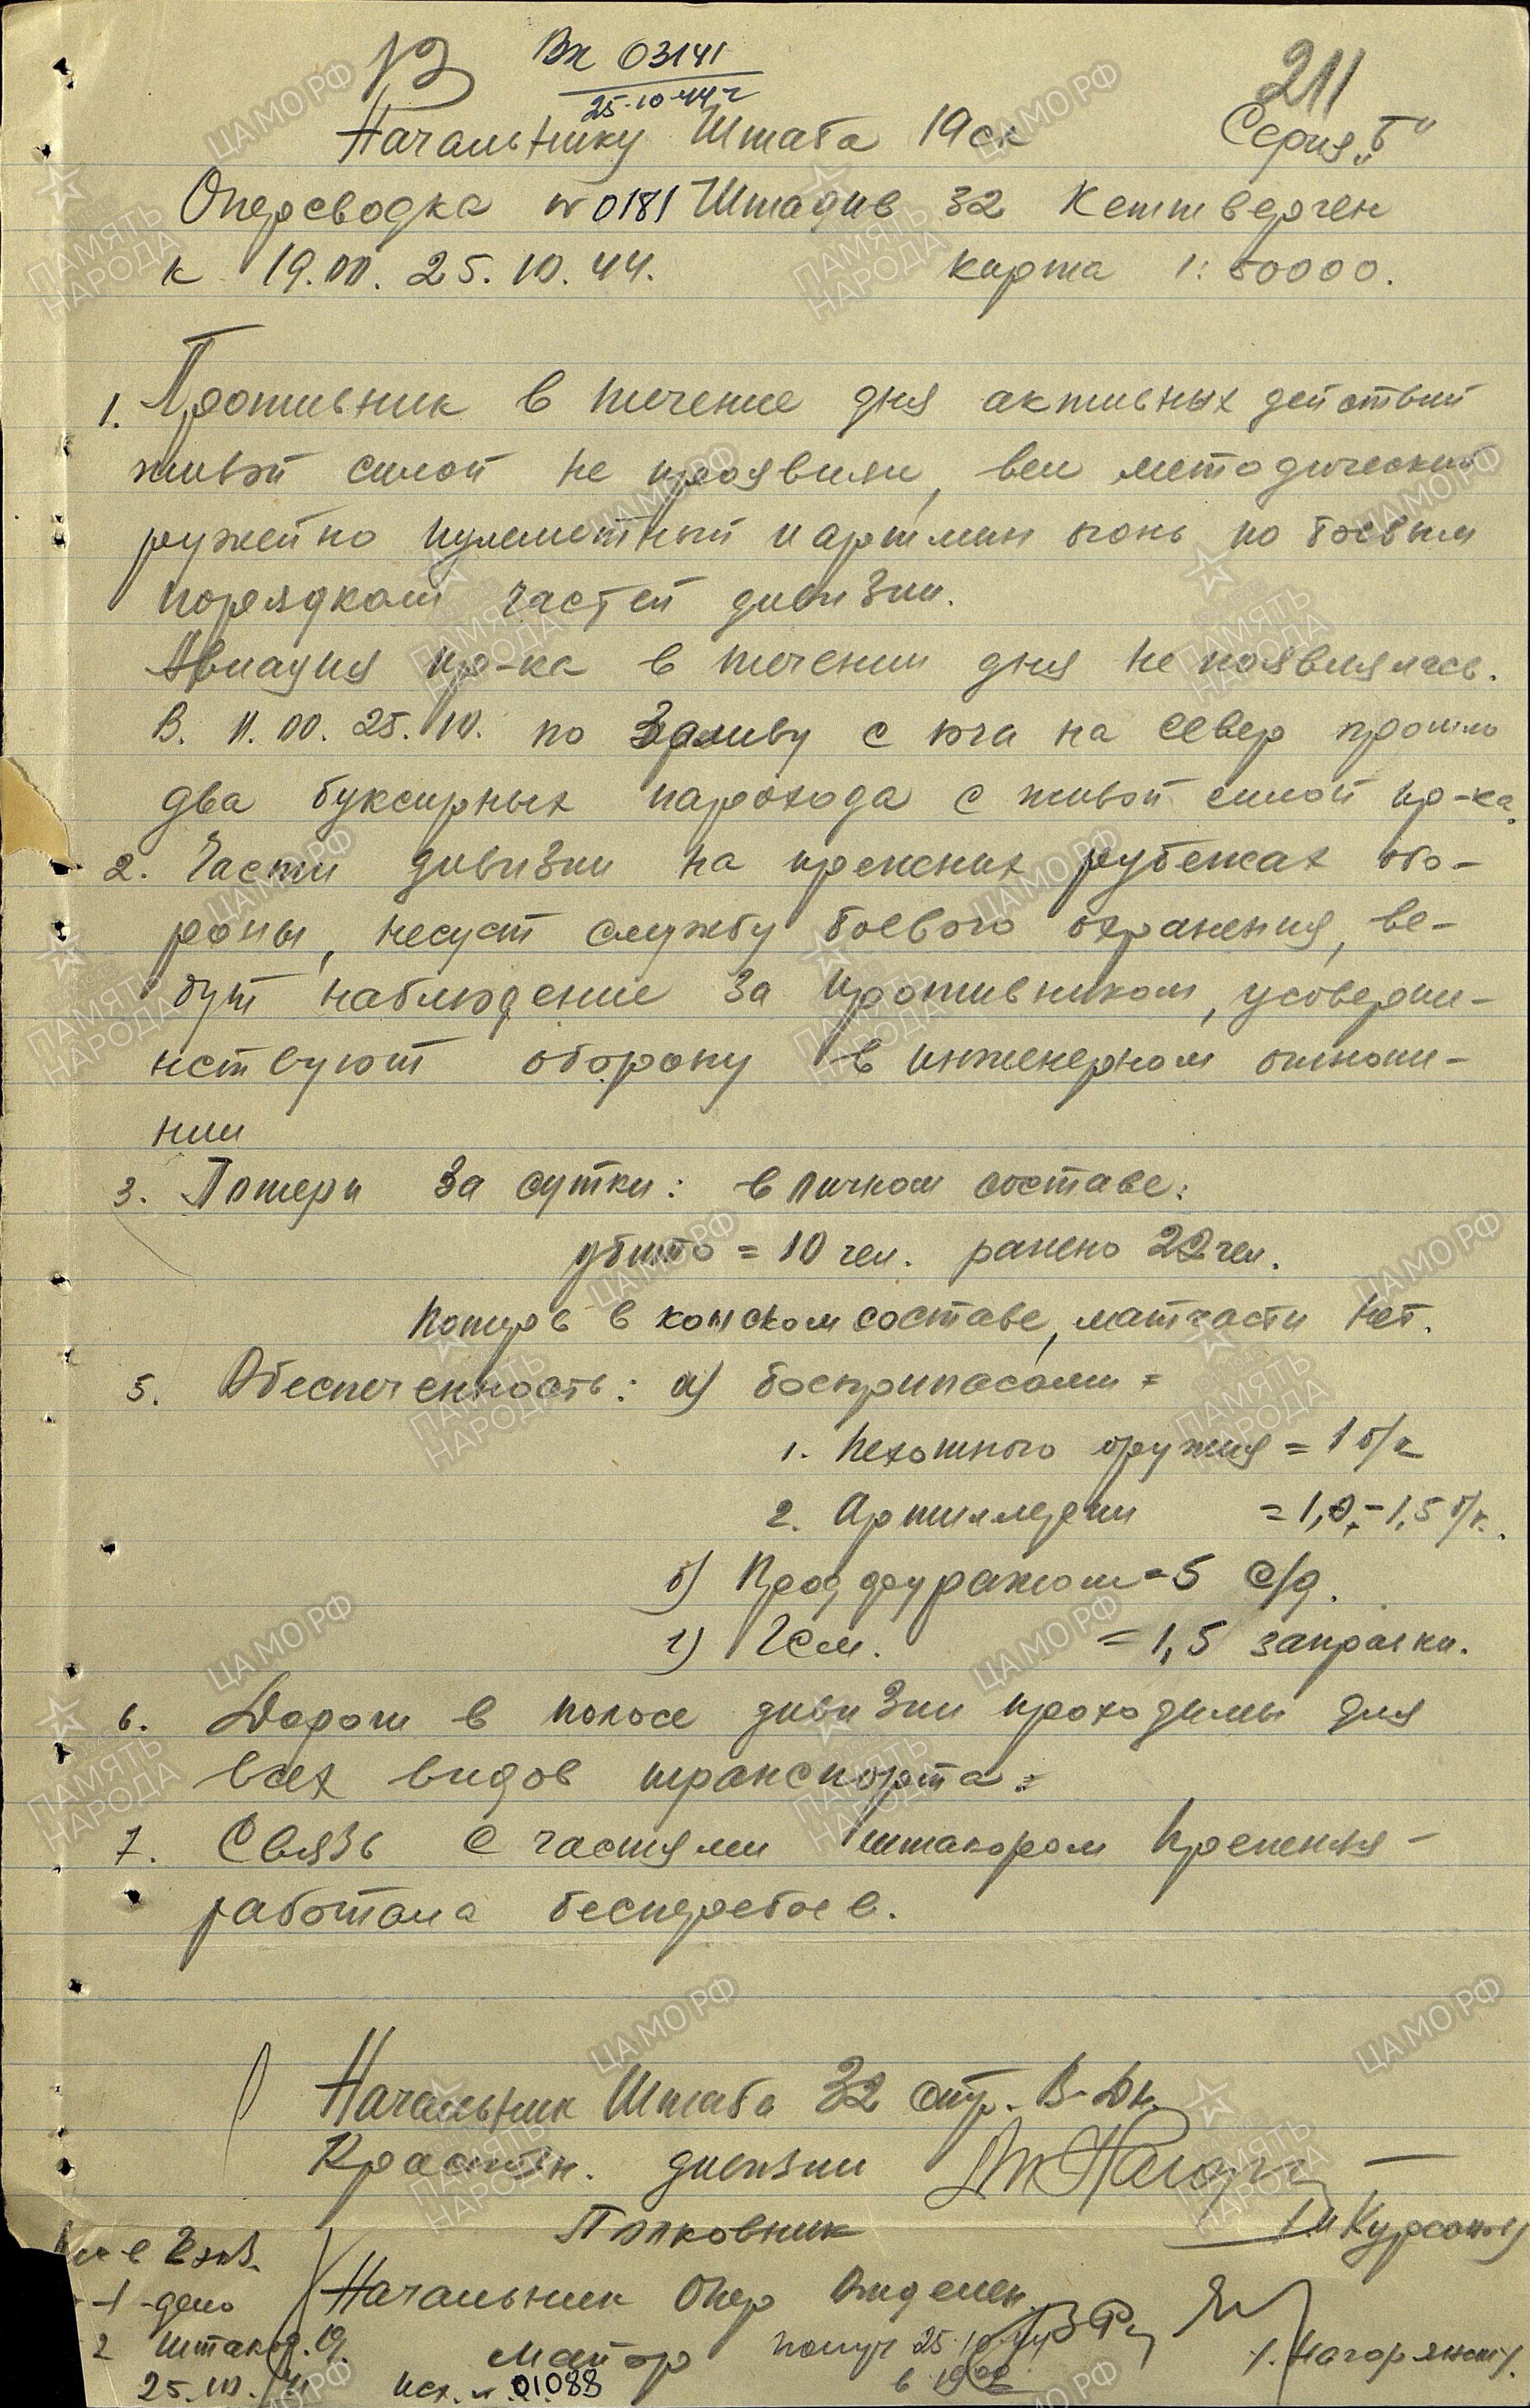 Вх 03141
25.10.44 г
211
Начальнику Штаба 19 ск Серия „Б"
Оперсводка № 0181 Штадив 32 Кеттверген
к 19.00. 25.10.44. карта 1:50000.
1. Противник в течение дня активных действий
живой силой не проявлял, вел методический
ружейно пулеметный и артмин огонь по боевым
порядкам частей дивизии.
Авиация пр-ка в течении дня не появлялась.
В. 11.00. 25.10. по Заливу с юга на север прошло
два буксирных парохода с живой силой пр-ка.
2. Части дивизии на прежних рубежах обо-
роны, несут службу боевого охранения, ве-
дут наблюдение за противником, усоверше-
нствуют оборону в инженерном отноше-
нии
3. Потери за сутки: в личном составе:
убито = 10 чел. ранено 22 чел.
Потерь в конском составе, матчасти нет.
5. Обеспеченность: а) боеприпасами =
1. Пехотного оружия = 1 б/к
2. Артиллерии = 1,0 - 1,5 б/к.
б) Продфуражом - 5 с/д.
г) Гсм. = 1,5 заправки.
6. Дороги в полосе дивизии проходимы для
всех видов транспорта.
7. Связь с частями штакором
работала бесперебоев.
Начальник Штаба 32 стр. В-Дк.
Краснозн. дивизии
Полковник
2 экз.
Начальник Опер Отделен.
1 - дело
2 штакор. 19.
Майор
получ 25.10.44
в 19
25.10.44 Исх. № 01088